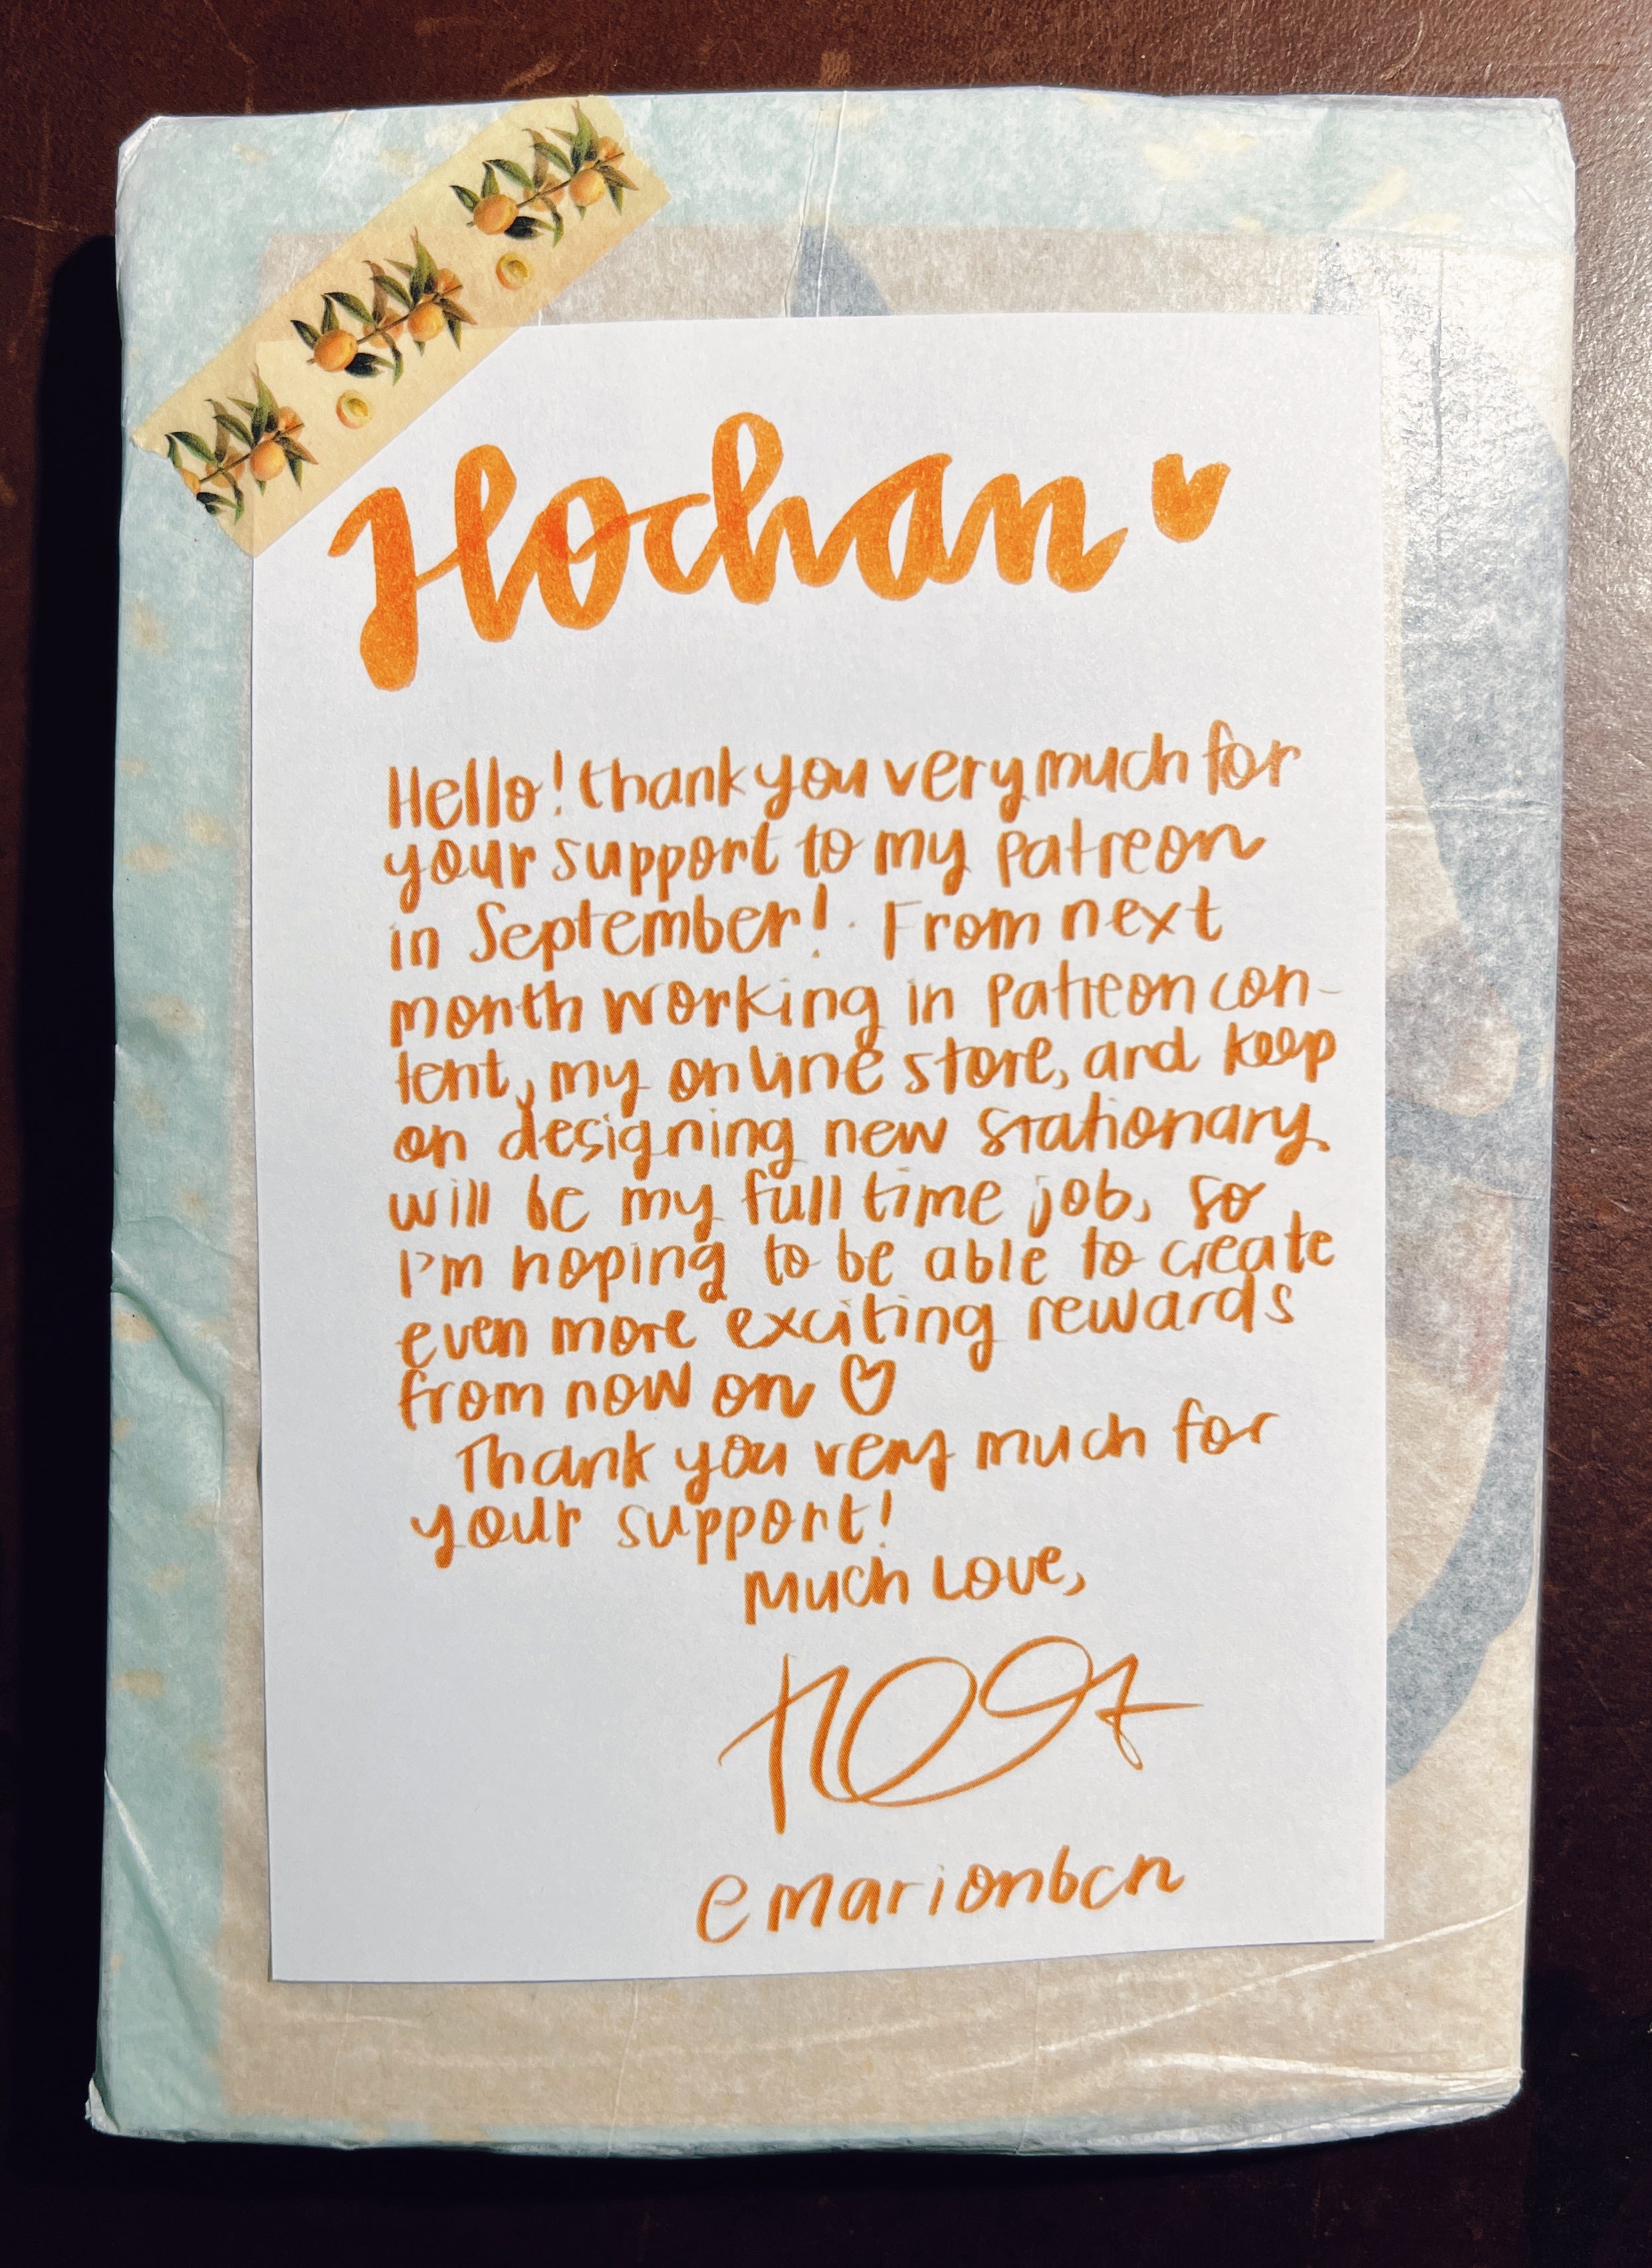 Hochan ♥
Hello! thank you very much for
your support to my Patreon
in September! From next
month working in Patreon con-
tent, my online store, and keep
on designing new stationary
will be my full time job, so
I'm hoping to be able to create
even more exciting rewards
from now on ♡
Thank you very much for
your support!
Much Love,
@marionbcn